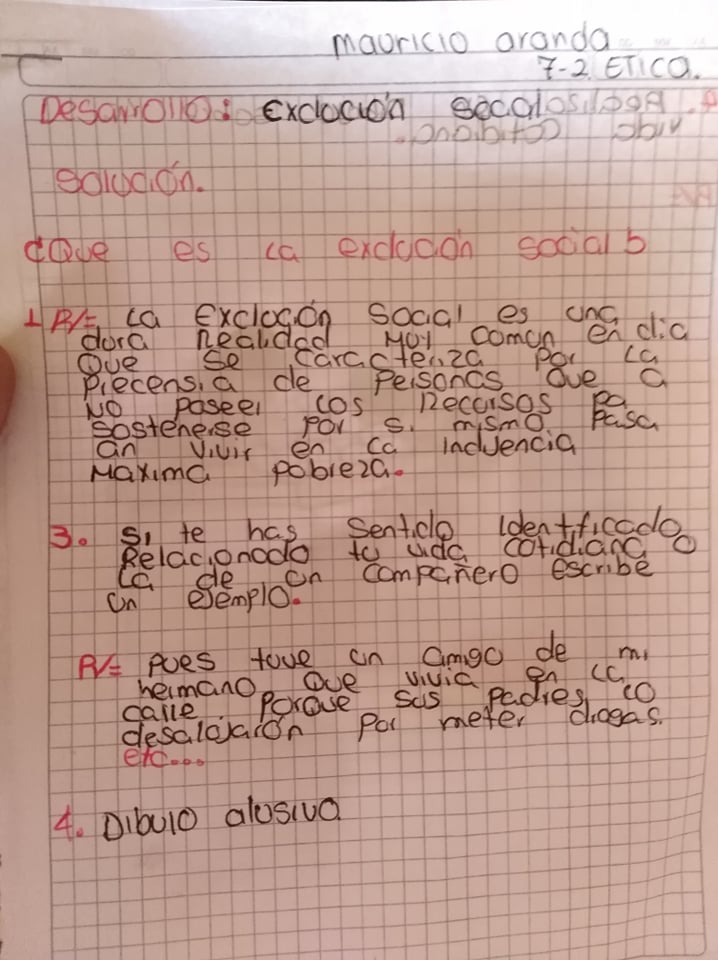 mauricio aranda
7-2 ETICA.
Desarrollo: Exclucion
Solución.
¿Que es la exclución social?
1 R/= La Exclución Social es una
dura Realidad muy comun en dia
Que se caracteriza por la
Precensia de Personas Que a
No poseer los Recursos pa
Sostenerse por si mismo. Pasa
an vivir en la induencia
Maxima pobreza.
3. Si te has Sentido identificado o
Relacionado tu vida cotidiana
la de un compañero escribe
un ejemplo.
R/= Pues tuve un amigo de mi
hermano que vivia en la
calle. Porque sus padres lo
desalojarón por meter drogas.
etc...
4. Dibujo alusivo